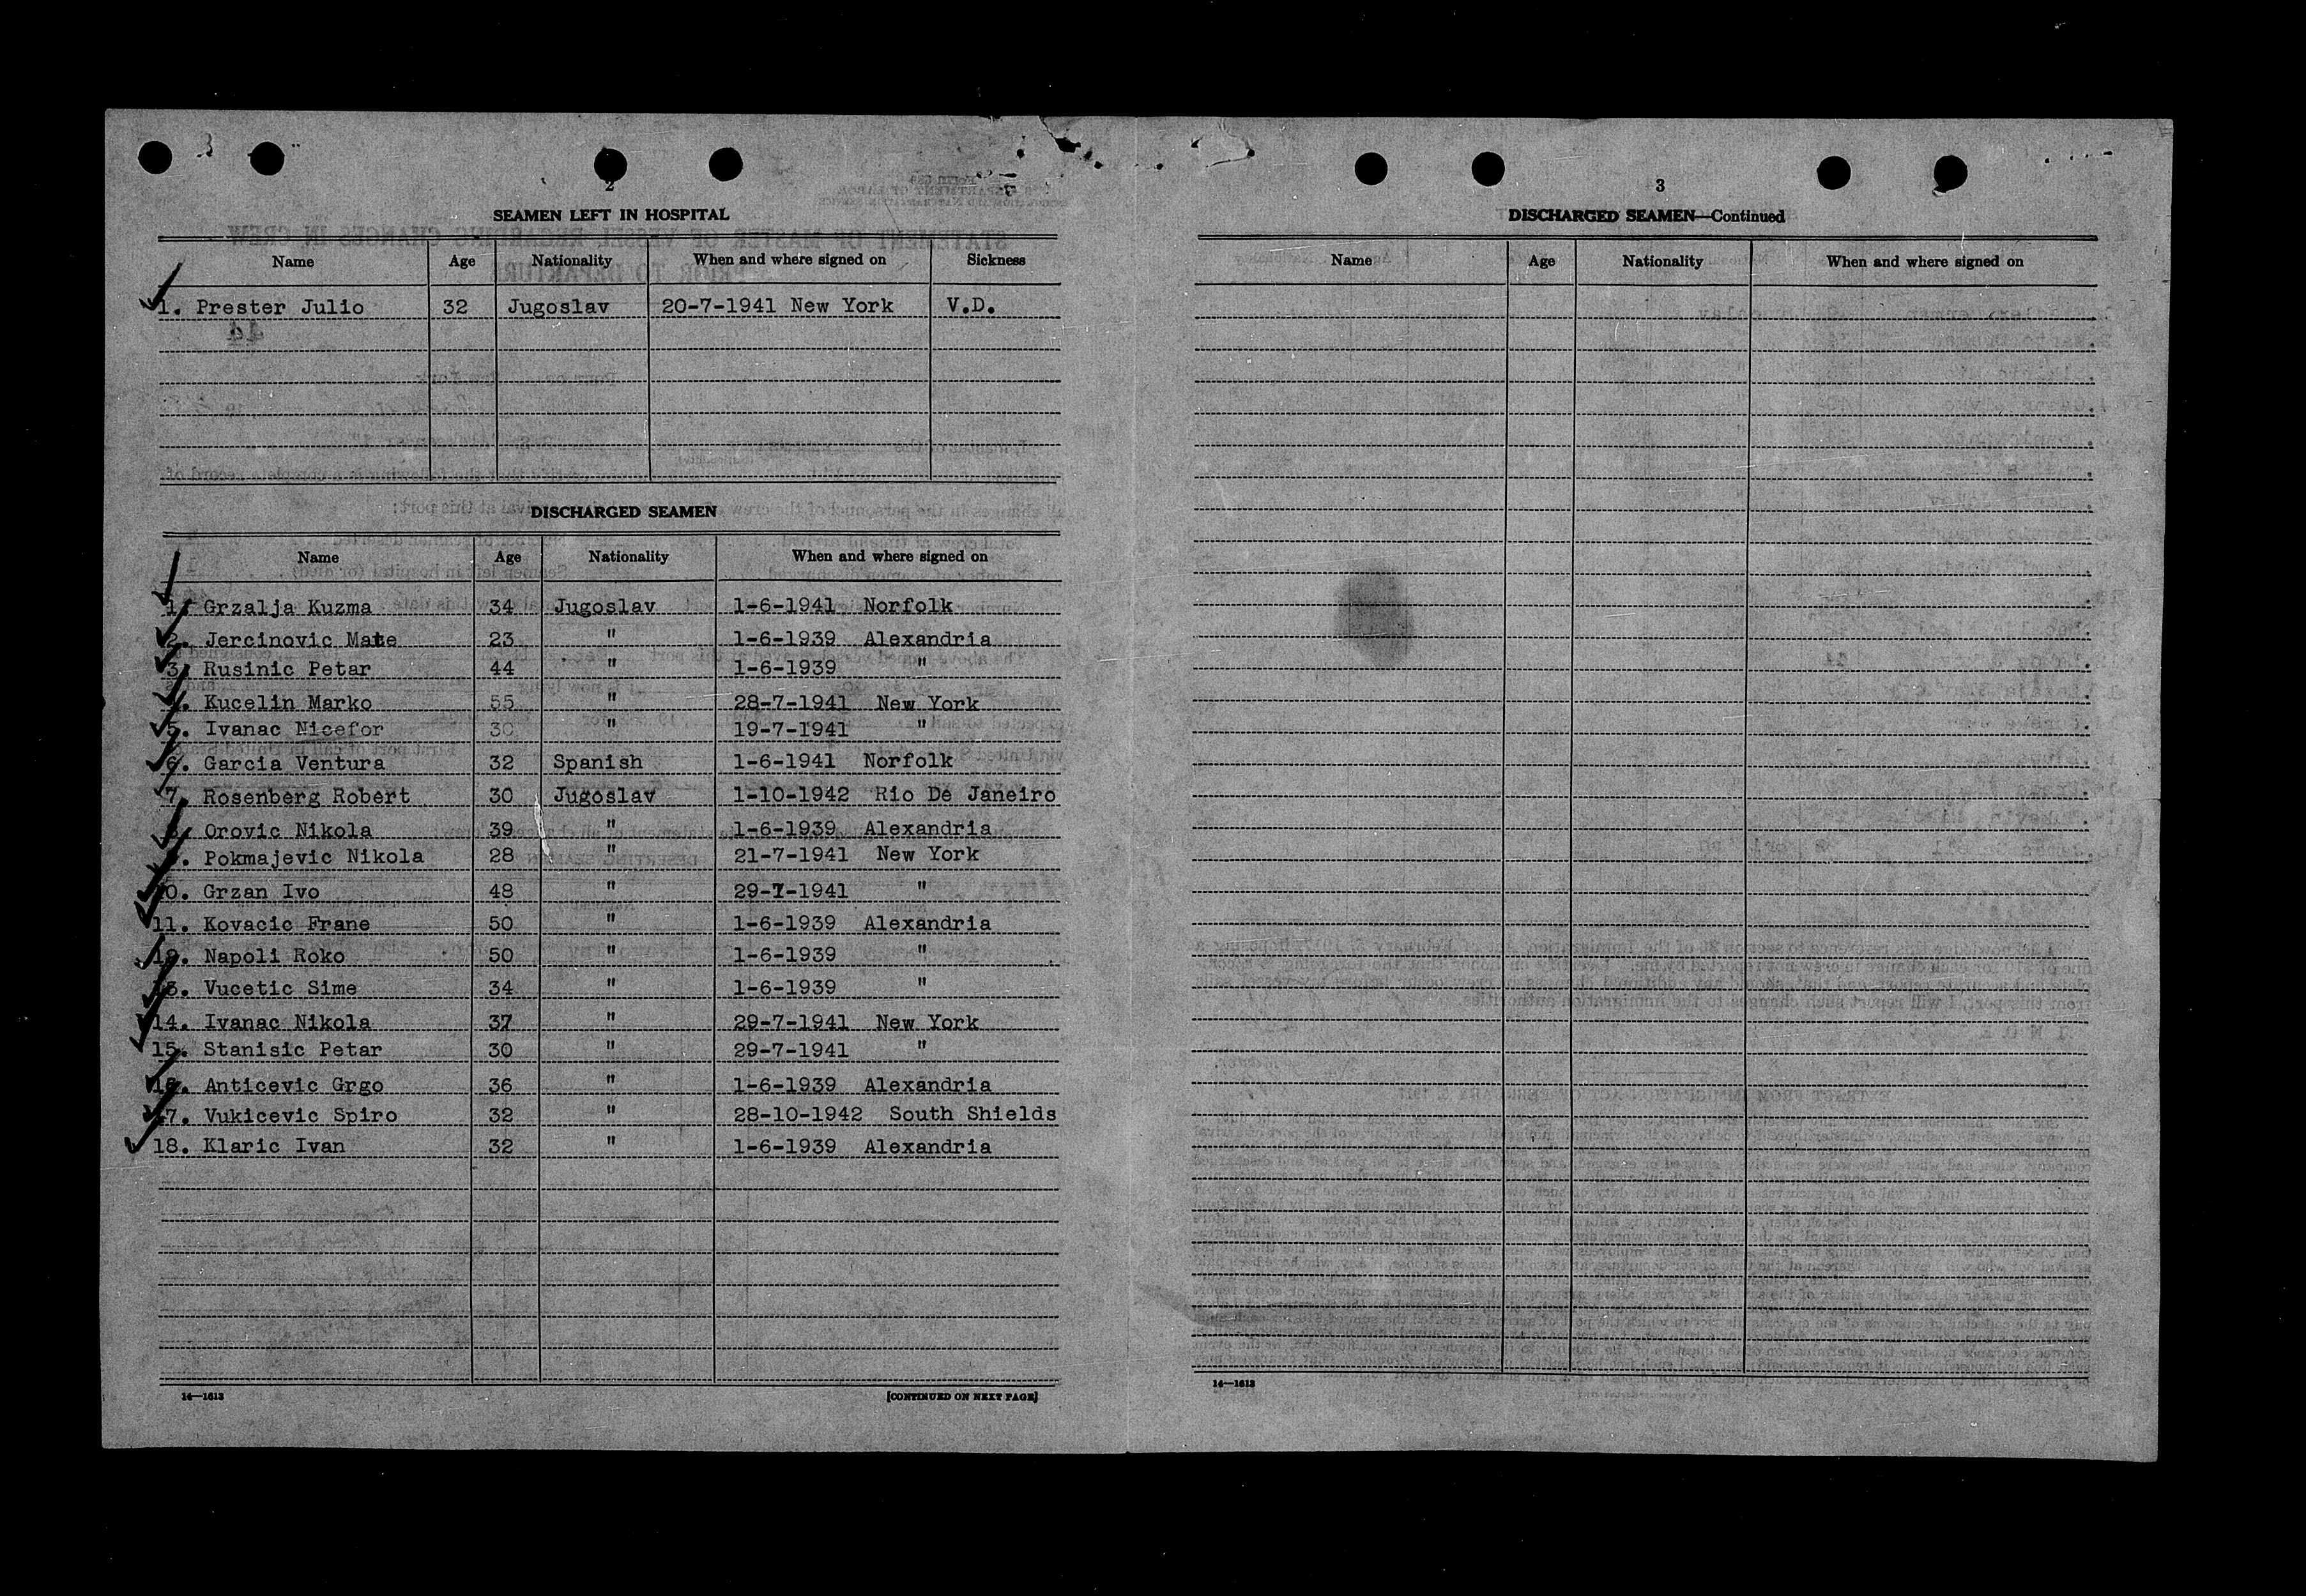 2
SEAMEN LEFT IN HOSPITAL
Name Age Nationality When and where signed on Sickness
1. Prester Julio 32 Jugoslav 20-7-1941 New York V.D.
DISCHARGED SEAMEN
Name Age Nationality When and where signed on
1. Grzalja Kuzma 34 Jugoslav 1-6-1941 Norfolk
2. Jercinovic Mate 23 " 1-6-1939 Alexandria
3. Rusinic Petar 44 " 1-6-1939 "
4. Kucelin Marko 55 " 28-7-1941 New York
5. Ivanac Nicefor 30 " 19-7-1941 "
6. Garcia Ventura 32 Spanish 1-6-1941 Norfolk
7. Rosenberg Robert 30 Jugoslav 1-10-1942 Rio De Janeiro
8. Orovic Nikola 39 " 1-6-1939 Alexandria
9. Pokmajevic Nikola 28 " 21-7-1941 New York
10. Grzan Ivo 48 " 29-7-1941 "
11. Kovacic Frane 50 " 1-6-1939 Alexandria
12. Napoli Roko 50 " 1-6-1939 "
13. Vucetic Sime 34 " 1-6-1939 "
14. Ivanac Nikola 37 " 29-7-1941 New York
15. Stanisic Petar 30 " 29-7-1941 "
16. Anticevic Grgo 36 " 1-6-1939 Alexandria
17. Vukicevic Spiro 32 " 28-10-1942 South Shields
18. Klaric Ivan 32 " 1-6-1939 Alexandria
14—1613 [CONTINUED ON NEXT PAGE]
3
DISCHARGED SEAMEN—Continued
Name Age Nationality When and where signed on
14—1613